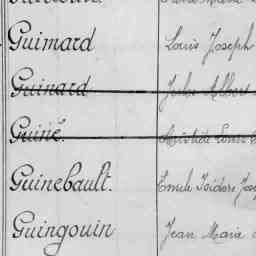 Guimard Louis Joseph
Guinard Jules Albert
Guiné. Aristide
Guinebault. Emile Isidore
Guingouin Jean Marie